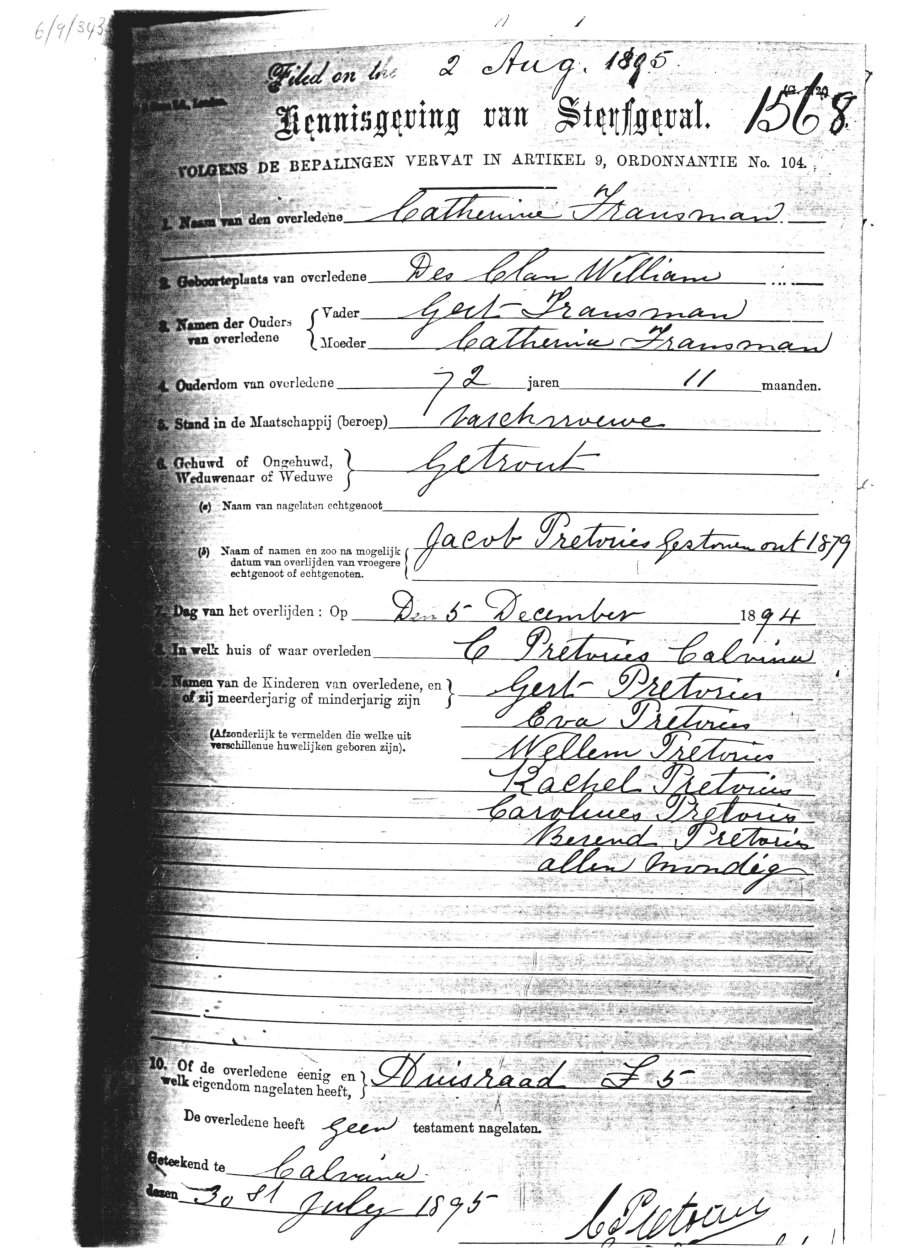 6/9/343
Filed on the 2 Aug. 1895.
1568.
Kennisgeving van Sterfgeval.
VOLGENS DE BEPALINGEN VERVAT IN ARTIKEL 9, ORDONNANTIE No. 104.
1. Naam van den overledene Catherine Fransman
2. Geboorteplaats van overledene Des Clan William
3. Namen der Ouders van overledene
Vader Gert Fransman
Moeder Catherina Fransman
4. Ouderdom van overledene 72 jaren 11 maanden.
5. Stand in de Maatschappij (beroep)
6. Gehuwd of Ongehuwd, Weduwenaar of Weduwe Getrout
(a) Naam van nagelaten echtgenoot
(b) Naam of namen en zoo na mogelijk
datum van overlijden van vroegere
echtgenoot of echtgenoten.
Jacob Pretories 1879
7. Dag van het overlijden: Op Den 5 December 1894
8. In welk huis of waar overleden C Pretories Calvinia
9. Namen van de Kinderen van overledene, en
of zij meerderjarig of minderjarig zijn
(Afzonderlijk te vermelden die welke uit
verschillenue huwelijken geboren zijn).
Gert Pretories
Eva Pretories
Wellem Pretories
Rachel Pretories
Pretories
Berend Pretories
allen mondég
10. Of de overledene eenig en
welk eigendom nagelaten heeft, Huisraad £ 5
De overledene heeft geen testament nagelaten.
Geteekend te Calvinia
dezen 30 st July 1895
C Pretories